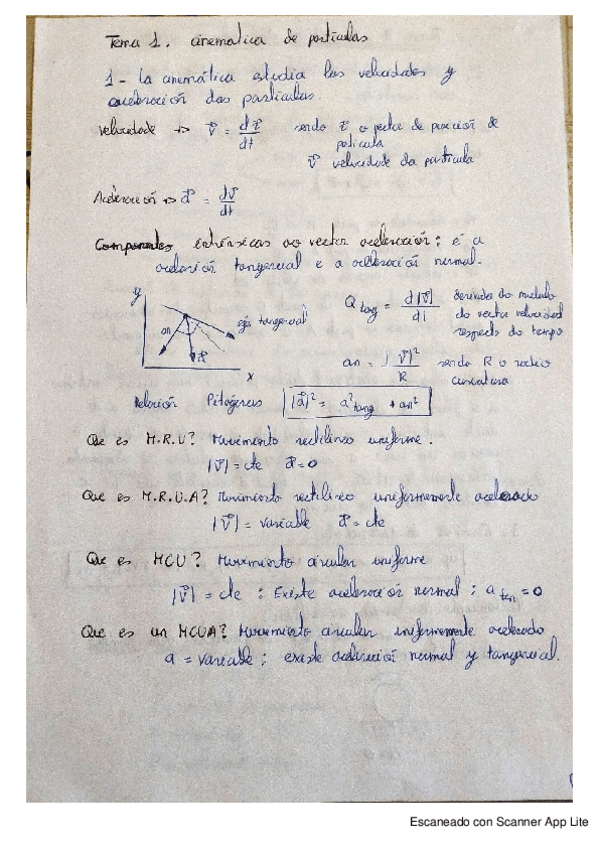 Tema 1. cinematica de particulas
1- La cinemática estudia las velocidades y
aceleración das particulas.
velocidade → v⃗ = dr⃗/dt sendo r⃗ o vector de posición de
particula
v⃗ velocidade da particula
Aceleración → a⃗ = dv⃗/dt
Componentes intrínsicas ao vector aceleración: é a
aceleración tangencial e a aceleración normal.
y
eje tangencial
an
a⃗
x
a tang = d|v⃗|/dt derivada do modulo
do vector velocidad
respecto do tempo
an = |v⃗|²/R sendo R o radio
curvatura
Relación Pitágoras |a⃗|² = a²tang + an²
Que es M.R.U? Movemento rectilineo uniforme.
|v⃗| = cte a⃗ = 0
Que es M.R.U.A? Movimiento rectilineo uniformemente acelerado
|v⃗| = variable a⃗ = cte
Que es MCU? Movemento circular uniforme
|v⃗| = cte ; Existe aceleración normal ; a tan = 0
Que es un MCUA? Movemento circular uniformemente acelerado
a = variable ; existe aceleración normal y tangencial.
Escaneado con Scanner App Lite